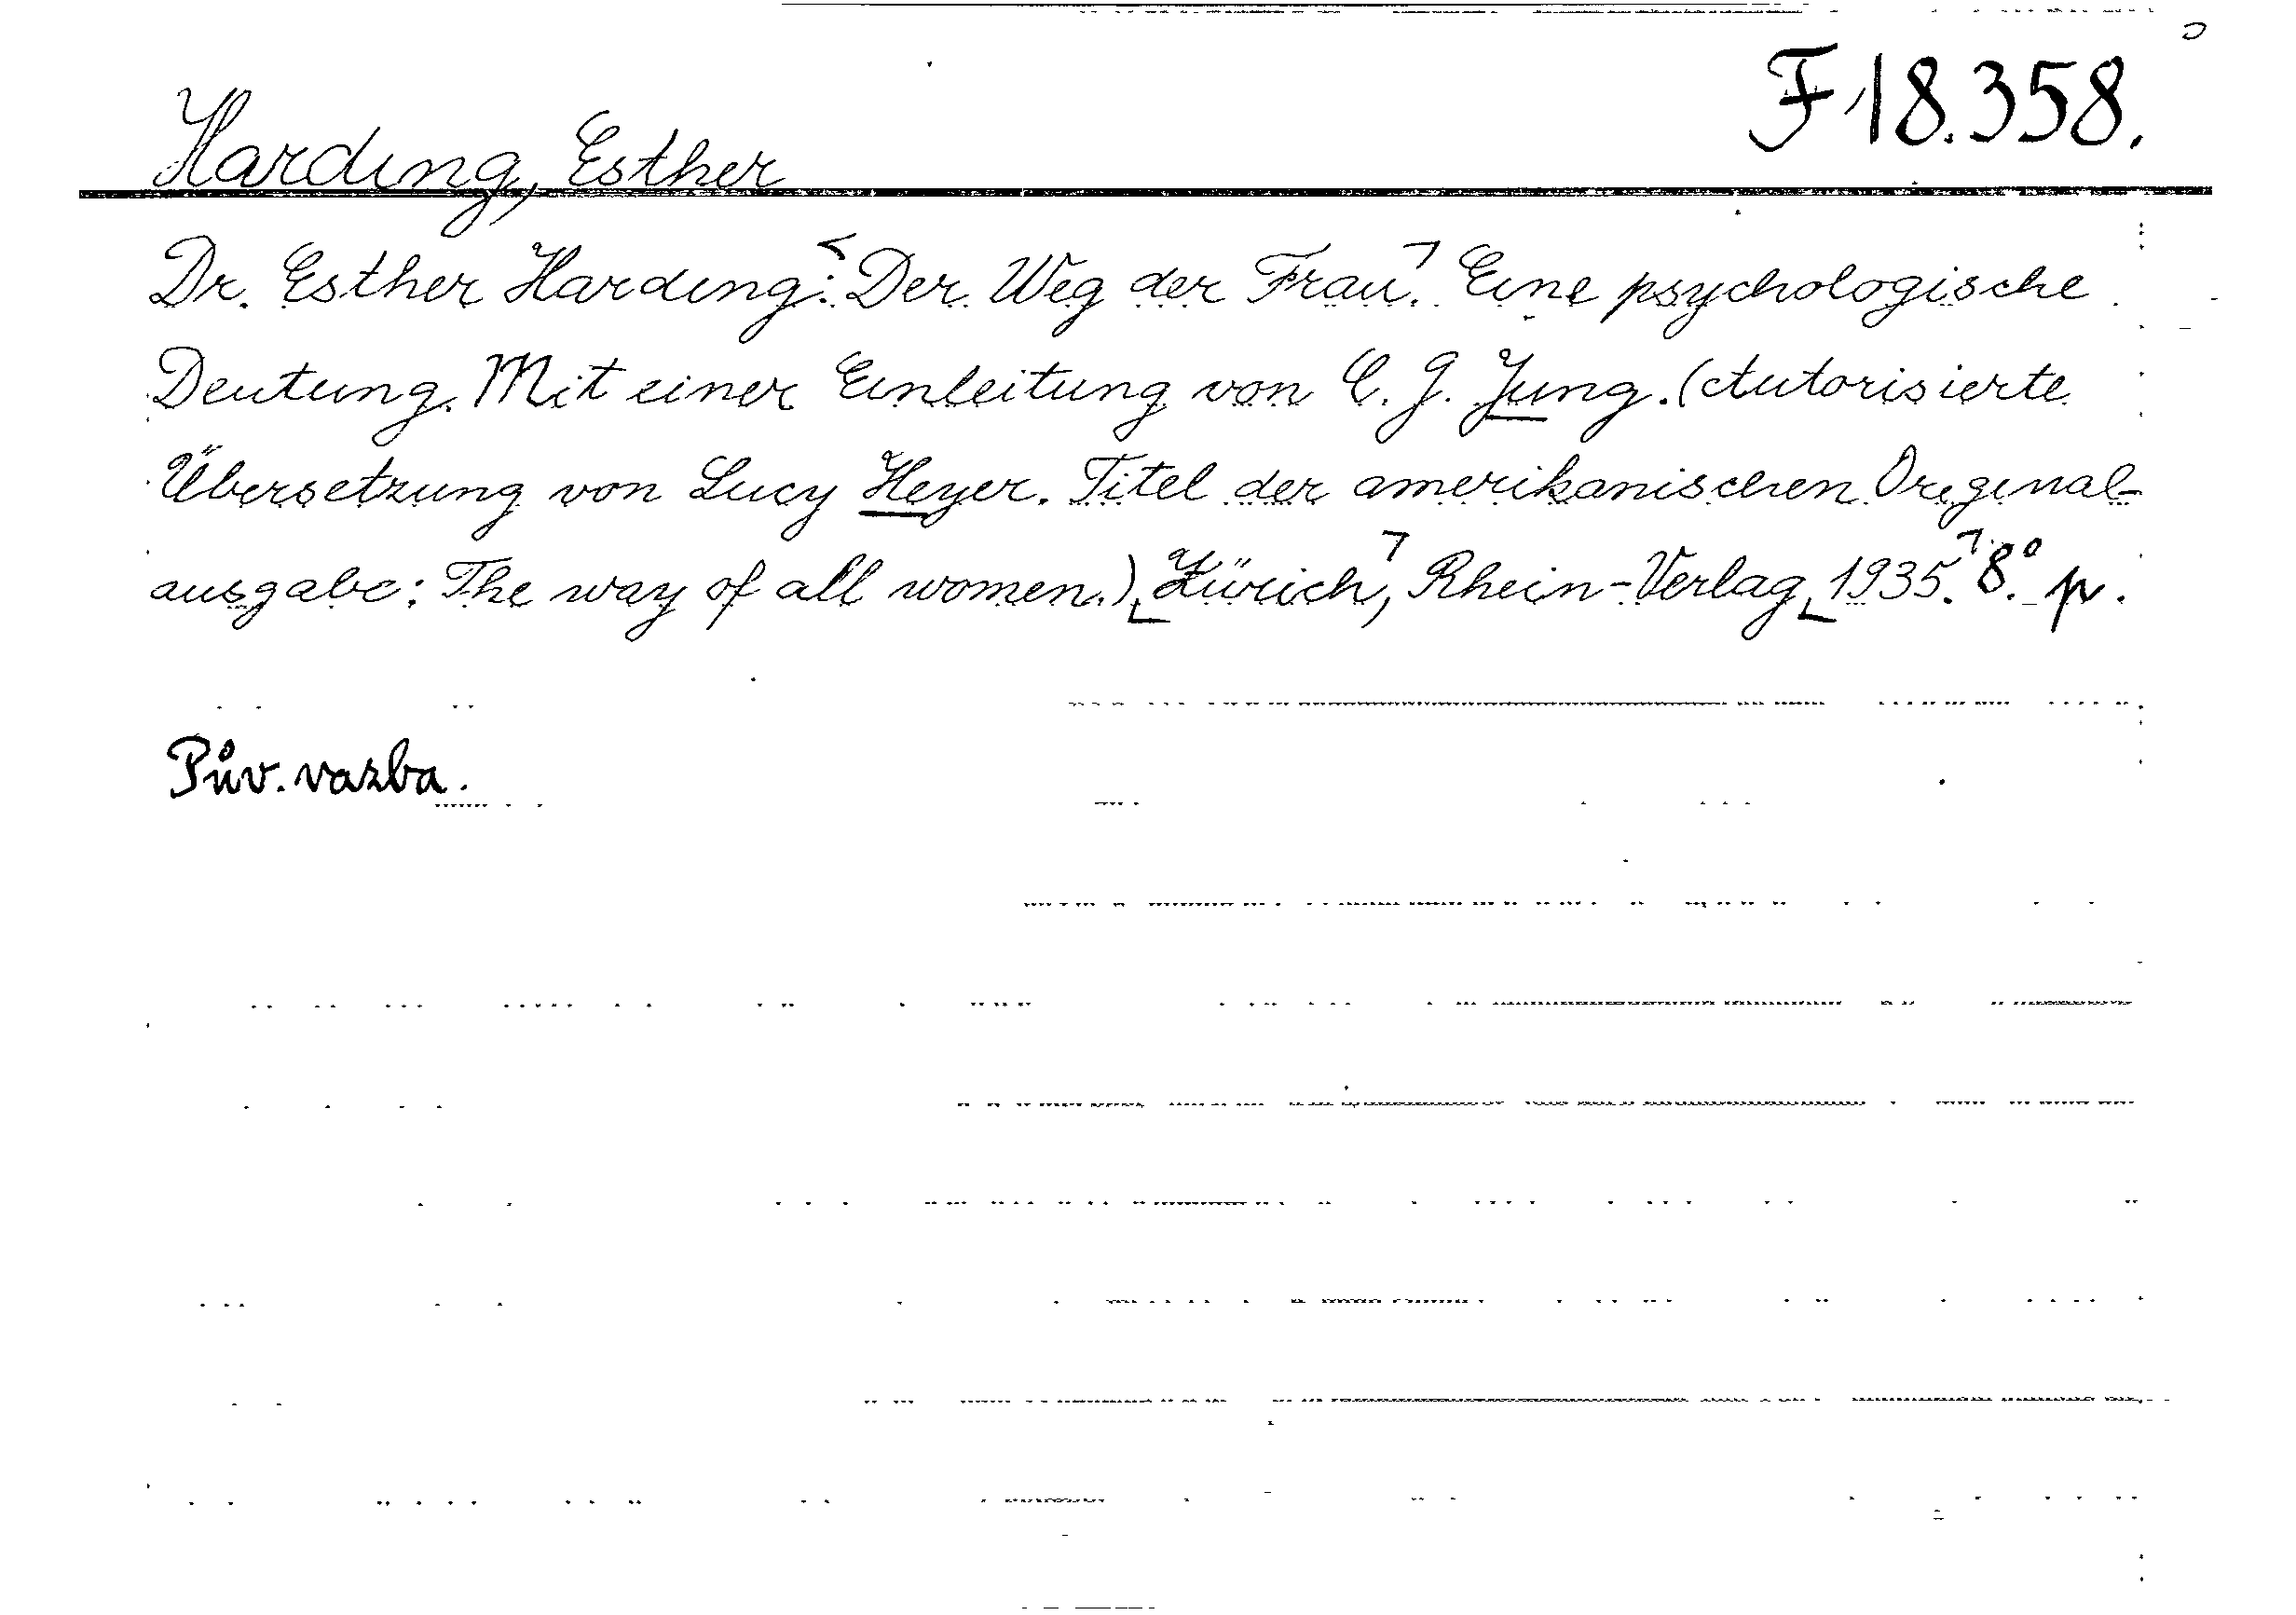 F 18.358.
Harding, Esther
Dr. Esther Harding: Der Weg der Frau. Eine psychologische
Deutung. Mit einer Einleitung von C. G. Jung. (Autorisierte
Übersetzung von Lucy Heyer. Titel der amerikanischen Original-
ausgabe: The way of all women.) Zürich, Rhein-Verlag, 1935. 8°. p.
Pův. vazba.